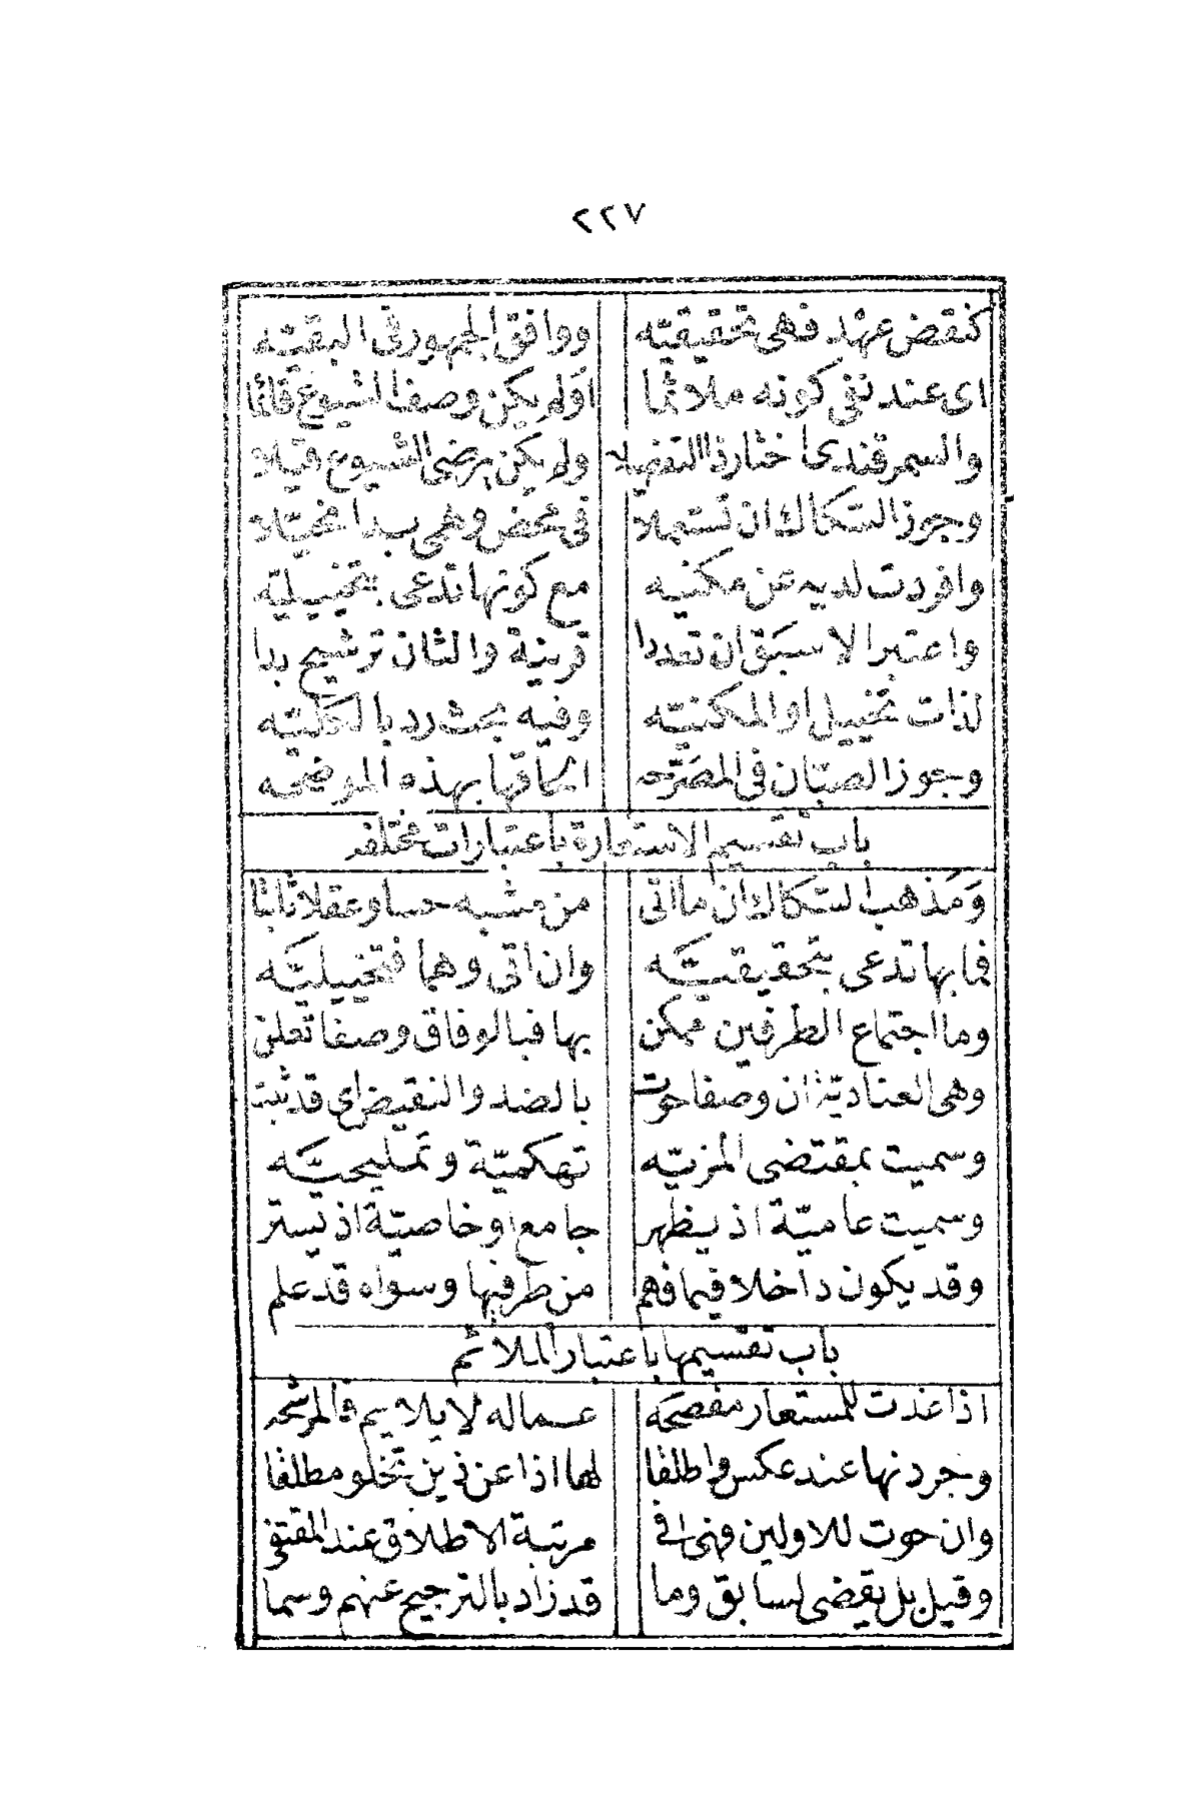 ٢٢٧
كنقض عهد فهى تحقيقيّه ووافق الجمهور فى البقيّه
اى عند نفى كونه ملائما اولم يكن وصف الشيوع قائما
والسمرقندى اختار ذا التفصيلا ولم يكن يرضى الشيوع قيلا
وجوز السّكاك ان تستعملا فى محض وهمى بدا مخيّلا
وافردت لديه عن مكنيه مع كونها تدعى بتخييليّه
واعتبر الاسبَق ان تعددا قرينة والثان ترشيح بدا
لذات تخييل او المكنيّه وفيه بحث رد بالكلّيّه
وجوز الصبّان فى المصَرّحه الحاقها بهذه الموضحه
باب تقسيم الاستعارة باعتبارات مختلفه
وَمَذهب السّكاك ان ما اتى من مشبه حسا وعقلا ثابتا
فما بها تدعى بتحقيقيَّه وان اتى وهما فتخييليَّه
وما اجتماع الطرفين ممكن بها فبالوفاق وصفا تعلن
وهى العناديّة ان وصفا حوت بالضد والنقيض اى قد ثبت
وسميت بمقتضى المزيّه تهكميّة وتمليحيَّه
وسميت عاميّة اذ يظهر جامع او خاصيّة اذ تستر
وقد يكون داخلا فيما فهم من طرفيها وسواه قد علم
باب تقسيمها باعتبار الملائم
اذا غذت للمستعار مفصحَه عماله لا يلايم فالمرشحه
وجردنها عند عكس واطلقا لها اذا عن ذين تخلو مطلقا
وان حوت للاولين فهى فى مرتبة الاطلاق عند المقتفى
وقيل بل يقضى لسابق وما قد زاد بالترجيح عنهم وسما